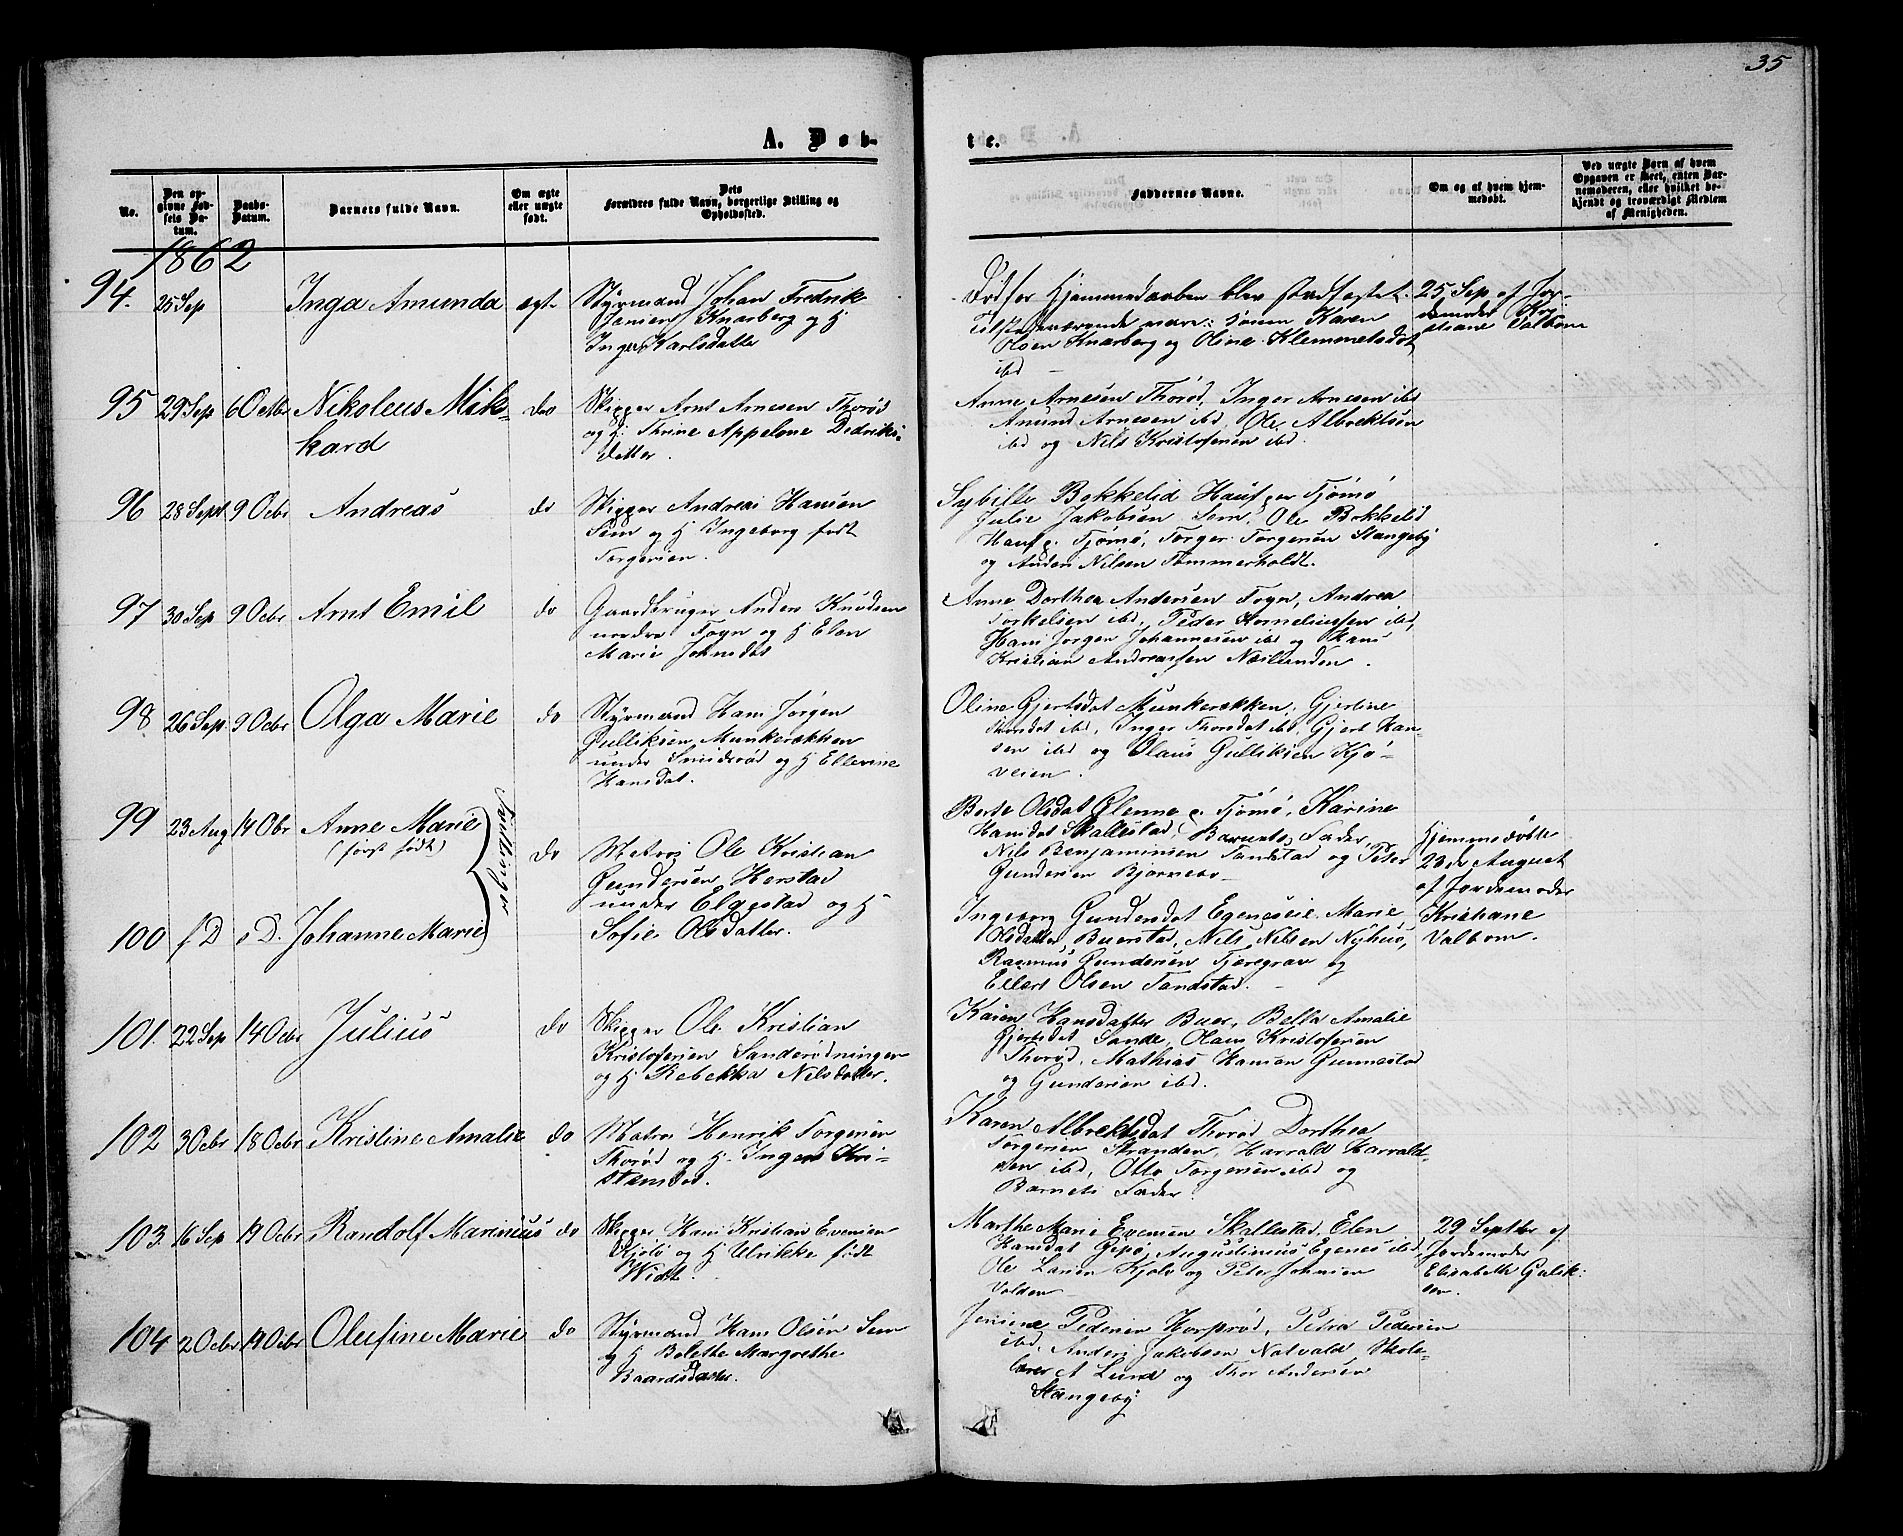 35
A. Døb-
te.
No.
Den op-
givne Fød-
sels Da-
tum.
Daabs-
Datum.
Barnets fulde Navn.
Om ægte
eller uægte
født.
Dets
Forældres fulde Navn, borgerlige Stilling og
Opholdssted.
Faddernes Navne.
Om og af hvem hjem-
medøbt.
Ved uægte Børn af hvem
Opgaven er skeet, enten Bar-
nemoderen, eller hvilket be-
kjendt og troværdigt Medlem
af Menigheden.
1862
94. 25 Sep Inga Amunda ægte
Styrmand Johan Fredrik
Jensen Knarberg og H
Inger Karlsdatte
Før Hjemmedaaben blev stadfæstet.
Tilstedeværende vare: Karen
Olsen Knarberg og Oline Klemmetsdat
ibd
25 Sep af Jor-
demoder Kri
stiane Valbom
95 29 Sep 6 Octbr Nikoleus Mik-
kard
do
Skipper Arnt Arnesen Thorød
og H. Thrine Appelone Didriks-
datter.
Anne Arnesen Thorød, Inger Arnesen ibd
Amund Arnesen ibd, Ole Albrektsen
ibd og Nils Kristofersen ibd.
96 28 Sept 9 Ocbr Andreas do
Skipper Andreas Hansen
Sem og H Ingeborg født
Torgersen.
Sybille Bokkelid Tjømø
Julie Jakobsen Sem, Ole Bokkelid
Tjømø, Torger Torgersen Stangeby
og Anders Nilsen Tømmerholdt.
97 30 Sep 9 Ocbr Arnt Emil do
Gaardbruger Anders Knudsen
nordre Foyn og H Elen
Marie Johnsdat
Anne Dorthea Andersen Foyn, Andrea
Torkelsen ibd, Peder Korneliussen ibd,
Hans Jørgen Johannesen ibd og Hans
Kristian Andreassen Næslunden.
98 26 Sep. 9 Ocbr Olga Marie do
Styrmand Hans Jørgen
Gulliksen Munkerækken
under Smidsrød og H Ellevine
Hansdat.
Oline Gjertsdat Munkerækken, Gjertine
Thordat ibd, Inger Thorsdat ibd, Gjert Han-
sen ibd og Olaus Gulliksen Kjø-
veien.
99 23 Aug 14 Obr Anne Marie
(først født)
Tvillinger
do
Matros Ole Kristian
Gundersen Herstad
under Elgestad og H
Sofie Olsdatter.
Berte Olsdat Glenne p. Tjømø, Karine
Hansdat Skallestad, Barnets Fader,
Nils Benjaminsen Tandstad og Peter
Gundersen Bjørnebo
Hjemmedøbte
23de August
af Jordemoder
Kristiane
Valbom.
100 s D. s D. Johanne Marie
Ingeborg Gundersdat Egeneseie Marie
Olsdatter Buerstad, Nils Nilsen Nyhus,
Rasmus Gundersen Tjæregrav og
Ellert Olsen Tandstad.
101. 22 Sep 14 Ocbr Julius do
Skipper Ole Kristian
Kristofersen Sanderødningen
og H Rebekka Nilsdatter.
Karen Hansdatter Buer, Bella Amalie
Gjertsdat Sande, Olaus Kristofersen
Thorød, Mathias Hansen Gunnestad
og Gundersen ibd.
102 3 Ocbr 18 Ocbr Kristine Amalie do
Matros Henrik Torgersen
Thorød og H. Inger Kri-
stensdat.
Karen Albrektsdat Thorød Dorthea
Torgersen Stranden, Harrald Harrald-
sen ibd, Otto Torgersen ibd og
Barnets Fader.
103. 16 Sep 19 Ocbr Randolf Marinius do
Skipper Hans Kristian Evensen
Kjølø og H Ulrikke født
Widt.
Marthe Marie Evensen Skallestad, Elen
Hansdat Gipø, Augustinius Egenes ibd,
Ole Larsen Kjølø og Peter Johnsen
Volden
29 Septbr af
Jordemoder
Elisabeth Gulik-
sen.
104 2 Ocbr 19 Ocbr Olufine Marie do
Styrmand Hans Olsen Sem
og H Bolethe Margrethe
Baardsdatter.
Jensine Pedersen Horprød, Petra Pedersen
ibd, Anders Jakobsen Natvald Skole-
lærer A Lund og Thor Andersen
Stangeby